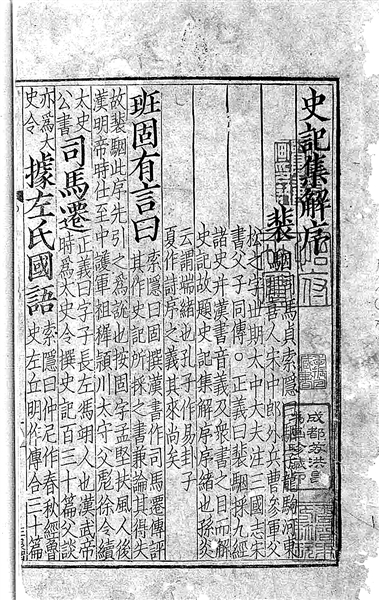 史記集解序
裴駰
馬貞索隱
龍駒河東
喜人宋中郎外兵曹參軍父
松之字世期太中大夫注三國志宋
書父子同傳○正義曰裴駰採九經
諸史并漢書音義及衆書之目而解
史記故題史記集解序序緒也孫炎
云謂端緒也孔子作易卦子
夏作詩序之義其來尚矣
班固有言曰
索隱曰固撰漢書作司馬遷傳評
其作史記所採之書兼論其得失
故裴駰此序先引之爲說也按固字孟堅扶風人後
漢明帝時仕至中護軍祖穉潁川太守父彪徐令續
太史
公書
司馬遷
正義曰字子長左馮翊人也漢武帝
時爲太史令撰史記百三十篇父談
亦爲太
史令
據左氏國語
索隱曰仲尼作春秋經魯
史左丘明作傳合三十篇
成都